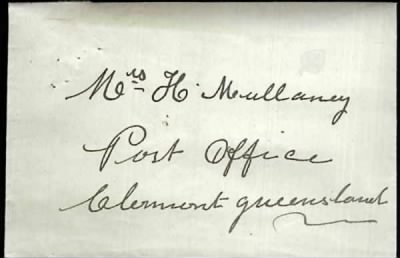 Mrs H. Mullaney
Post Office
Clermont queensland